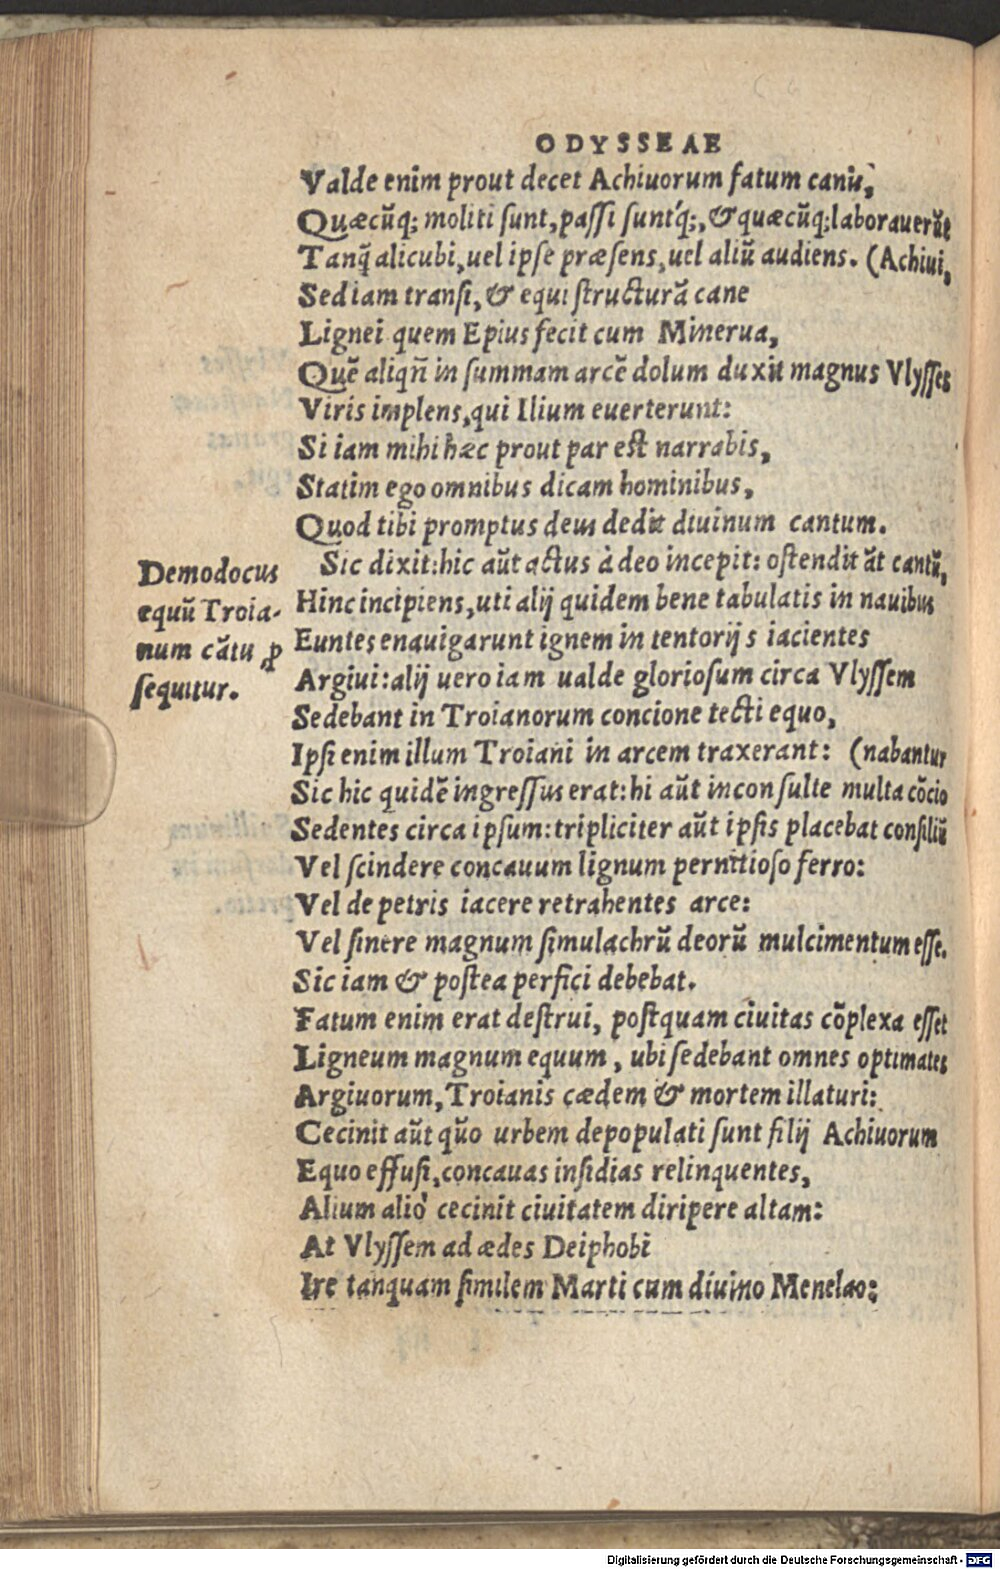 ODYSSEAE
Valde enim prout decet Achiuorum fatum canis,
Quæcũq; moliti sunt, passi suntq́;, & quæcũq; laborauerũt
Tanq̃ alicubi, uel ipse præsens, uel aliũ audiens. (Achiui,
Sed iam transi, & equi structurã cane
Lignei quem Epius fecit cum Minerua,
Quẽ aliqñ in summam arcẽ dolum duxit magnus Vlysses
Viris implens, qui Ilium euerterunt:
Si iam mihi hæc prout par est narrabis,
Statim ego omnibus dicam hominibus,
Quod tibi promptus deus dedit diuinum cantum.
Sic dixit: hic aũt actus à deo incepit: ostendit ãt cantũ,
Hinc incipiens, uti alij quidem bene tabulatis in nauibus
Euntes enauigarunt ignem in tentorijs iacientes
Argiui: alij uero iam ualde gloriosum circa Vlyssem
Sedebant in Troianorum concione tecti equo,
Ipsi enim illum Troiani in arcem traxerant: (nabantur
Sic hic quidẽ ingressus erat: hi aũt inconsulte multa cõcio
Sedentes circa ipsum: tripliciter aũt ipsis placebat consiliũ
Vel scindere concauum lignum pernitioso ferro:
Vel de petris iacere retrahentes arce:
Vel sinere magnum simulachrũ deorũ mulcimentum esse.
Sic iam & postea perfici debebat.
Fatum enim erat destrui, postquam ciuitas cõplexa esset
Ligneum magnum equum, ubi sedebant omnes optimates
Argiuorum, Troianis cædem & mortem illaturi:
Cecinit aũt quõ urbem depopulati sunt filij Achiuorum
Equo effusi, concauas insidias relinquentes,
Alium aliò cecinit ciuitatem diripere altam:
At Vlyssem ad ædes Deiphobi
Ire tanquam similem Marti cum diuino Menelao:
Demodocus
equũ Troia-
num cãtu ꝓ
sequitur.
Digitalisierung gefördert durch die Deutsche Forschungsgemeinschaft - DFG